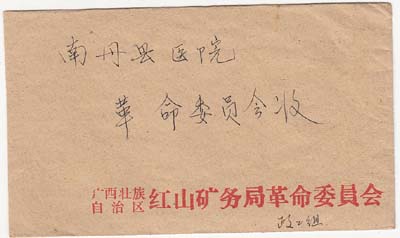 南丹县医院
革命委员会收
广西壮族
自治区 红山矿务局革命委員会
政工组